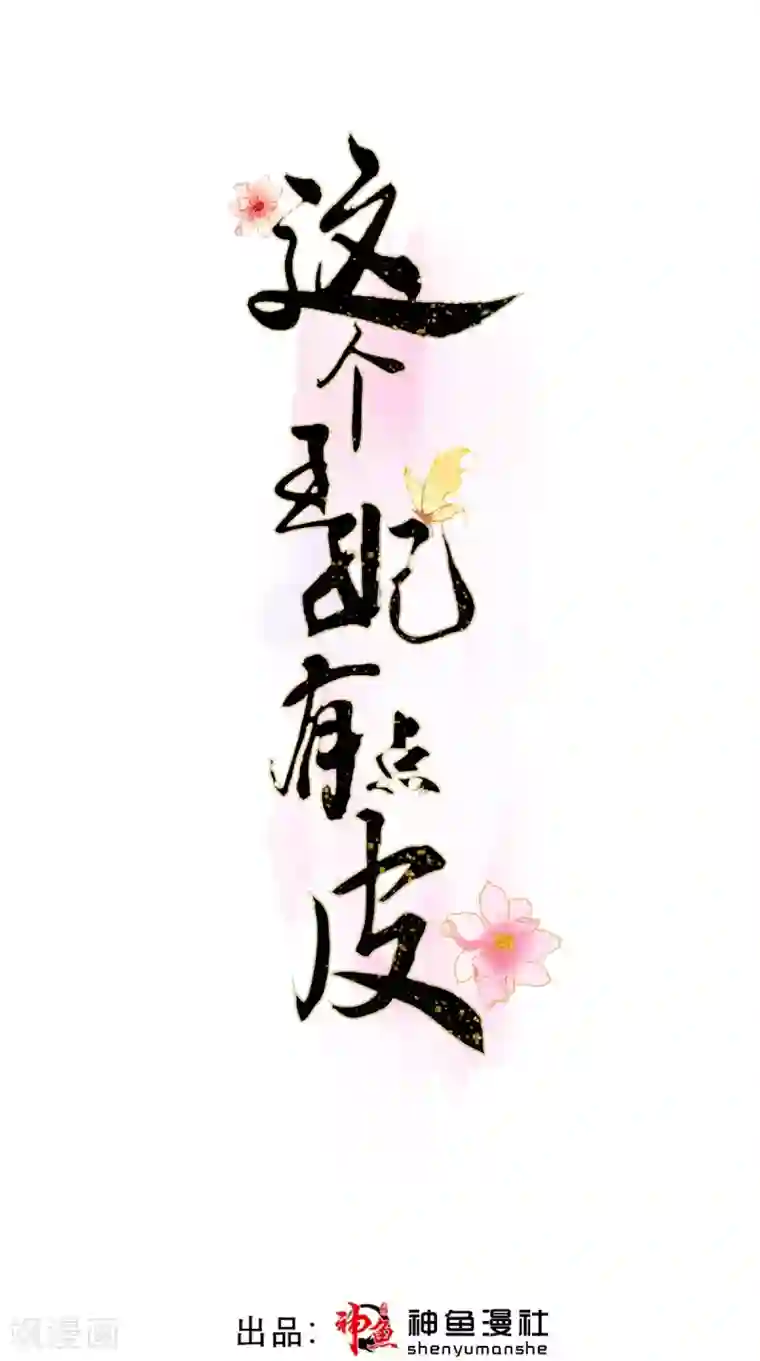 这个王妃有点皮
出品：神鱼 神鱼漫社
shenyumanshe
飒漫画